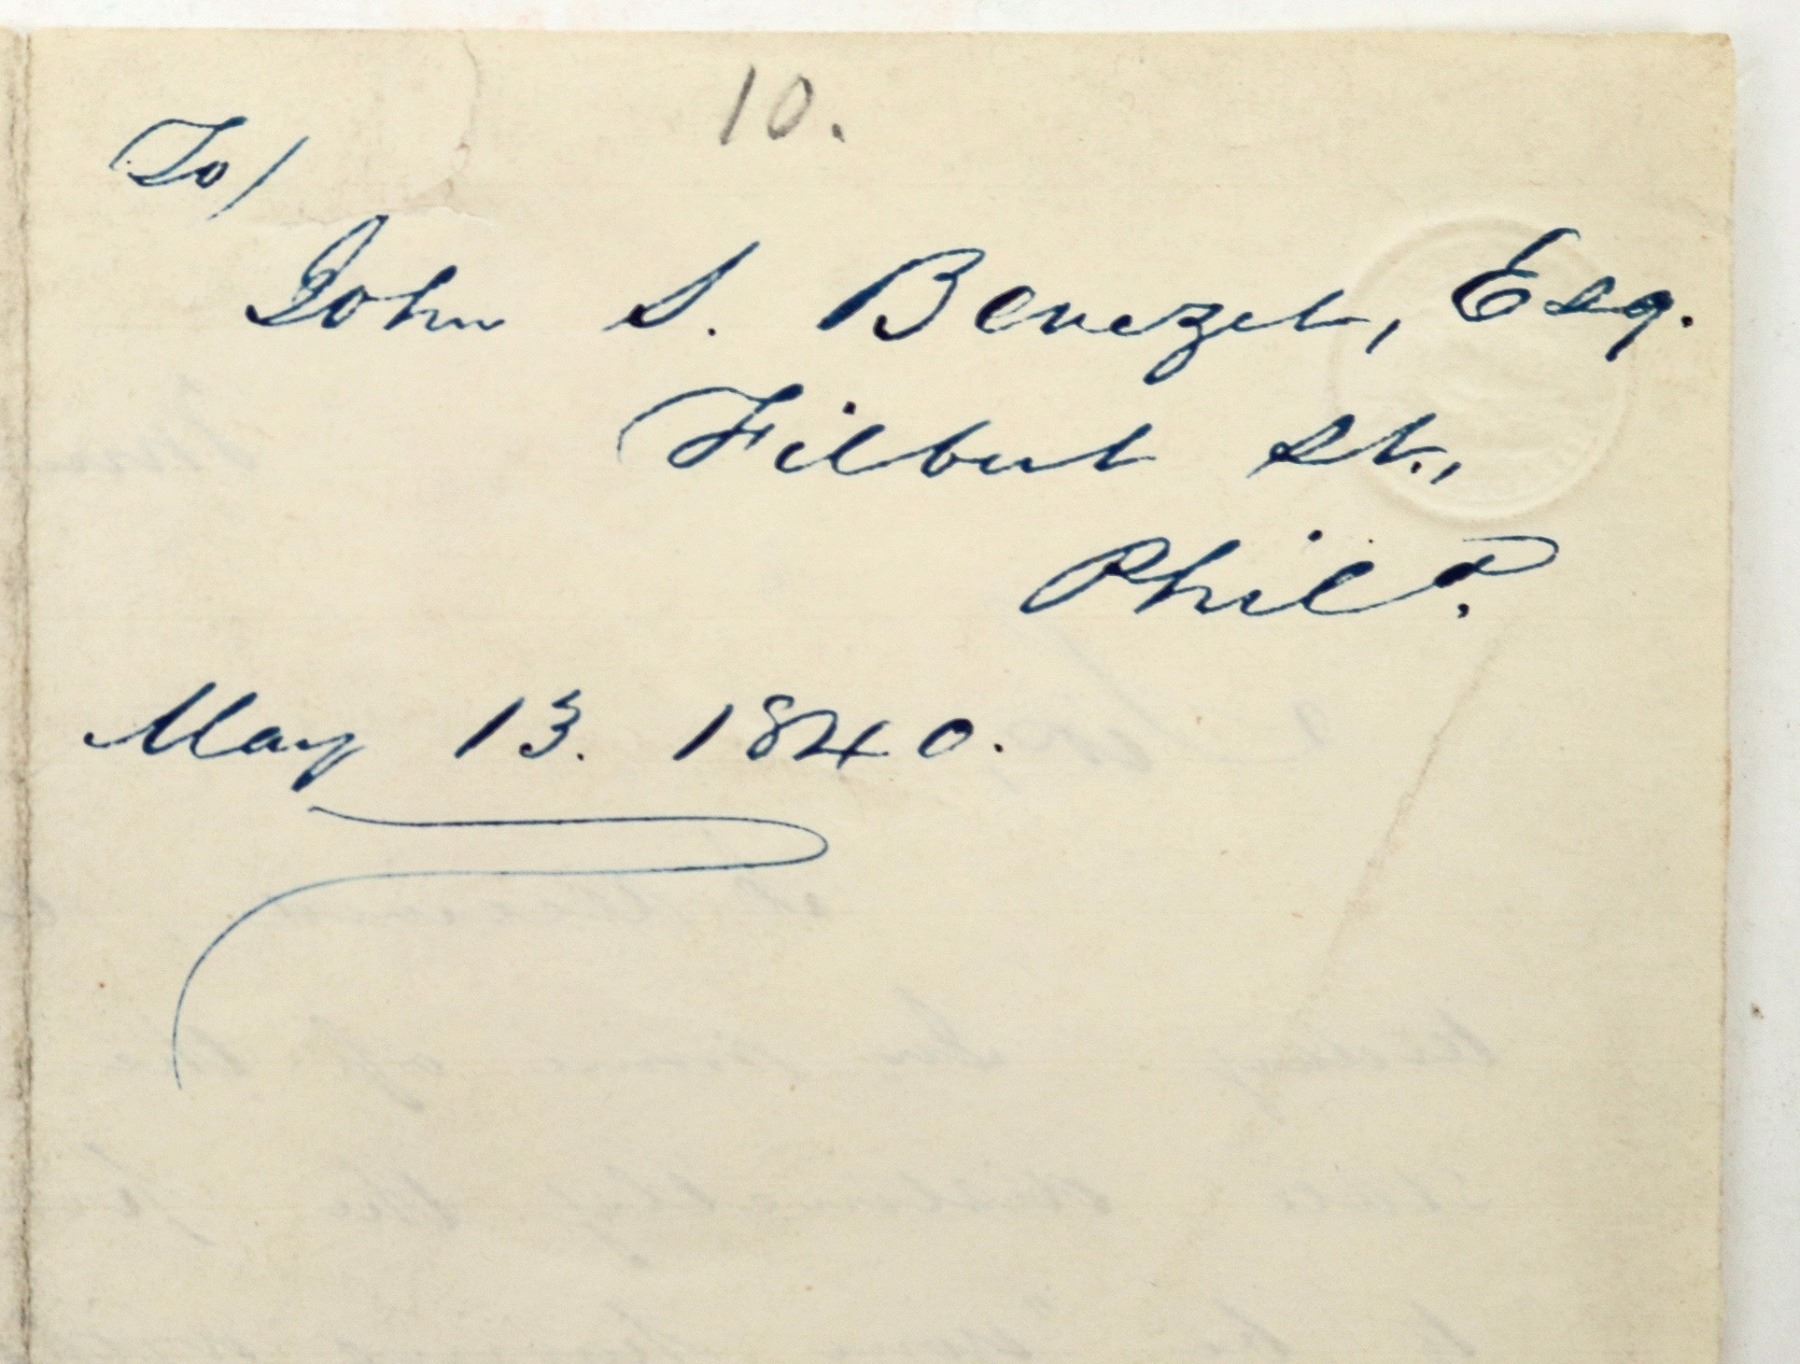 10.
To/
John S. Benezet, Esq.
Filbert St.,
Phila.
May 13. 1840.